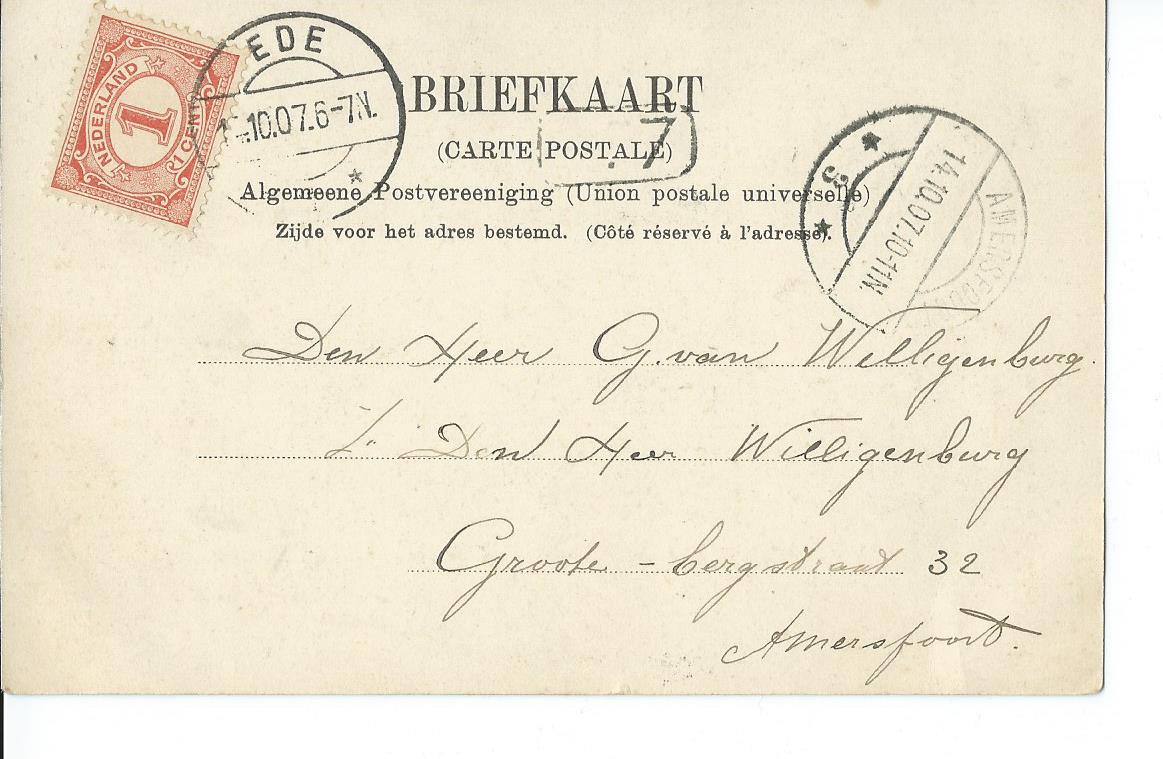 NEDERLAND
1
1 CENT
EDE
.10.07.6-7N.
BRIEFKAART
7
(CARTE POSTALE)
Algemeene Postvereeniging (Union postale universelle)
Zijde voor het adres bestemd. (Côté réservé à l'adresse).
3
14.10.07.10-11N.
AMERSFOORT
Den Heer G. van Welligenburg.
Den Heer Willigenburg
Groote - bergstraat 32
Amersfoort.